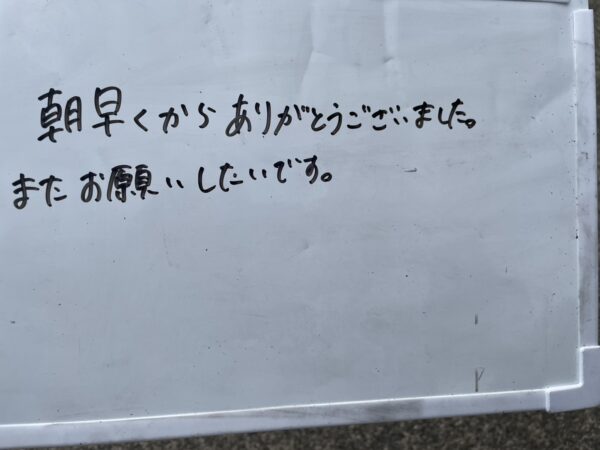 朝早くからありがとうございました。
またお願いしたいです。